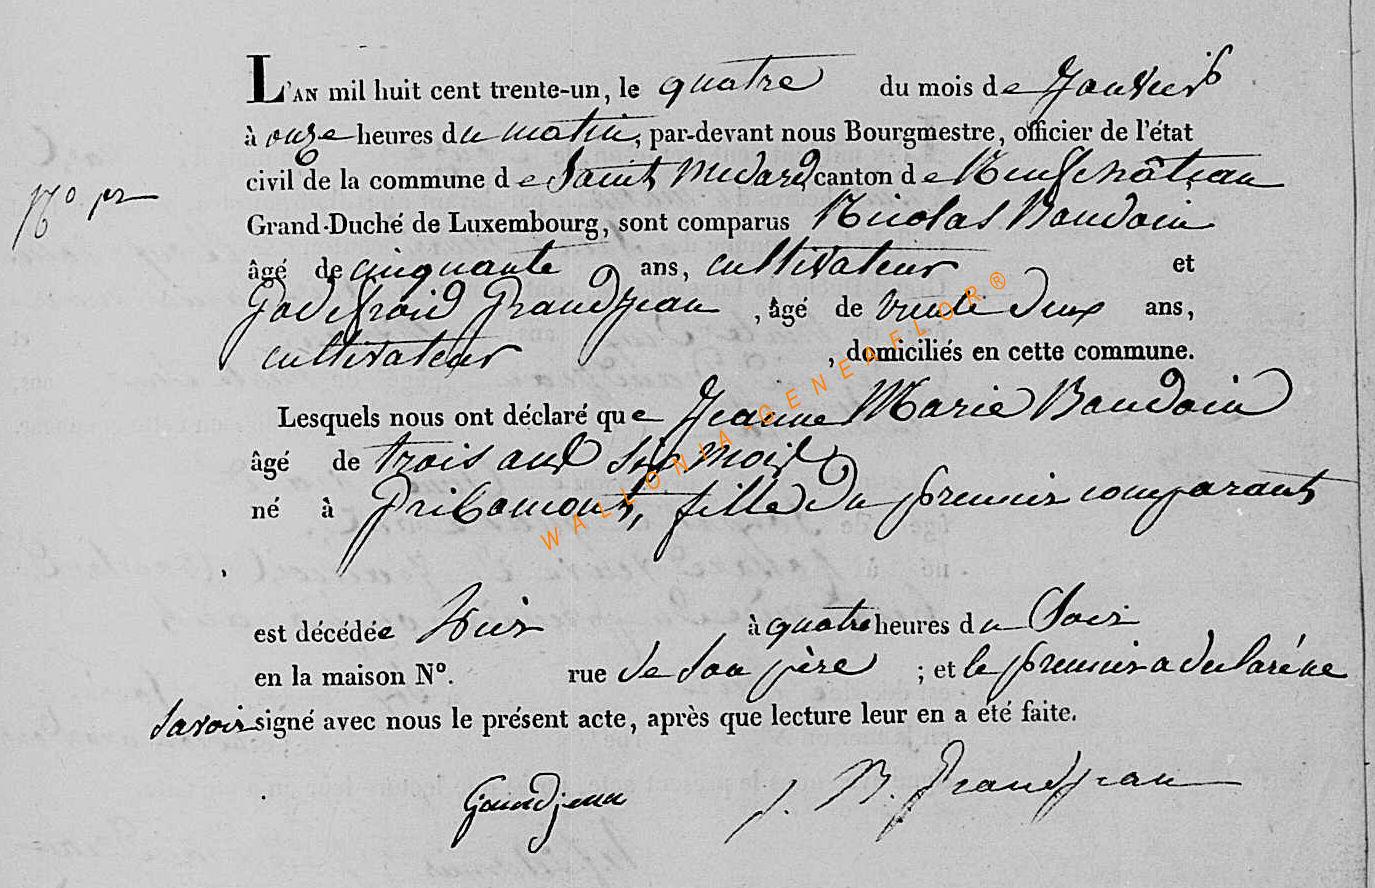 L'AN mil huit cent trente-un, le quatre du mois de Janvier
à onze heures du matin, par-devant nous Bourgmestre, officier de l'état
civil de la commune de Saint Médard, canton de Neufchâteau
Grand-Duché de Luxembourg, sont comparus Nicolas Baudoin
âgé de cinquante ans, cultivateur et
Godefroid Grandjean, âgé de vente deux ans,
cultivateur, domiciliés en cette commune.
Lesquels nous ont déclaré que Jeanne Marie Baudoin
âgé de trois ans six mois
né à Gribomont, fille du premier comparant
est décédée hier à quatre heures du Soir
en la maison N°. rue de son père ; et le premier a déclaré ne
savoir signé avec nous le présent acte, après que lecture leur en a été faite.
Grandjean J. B. Grandjean
WALLONIA-GENEAFLOR®